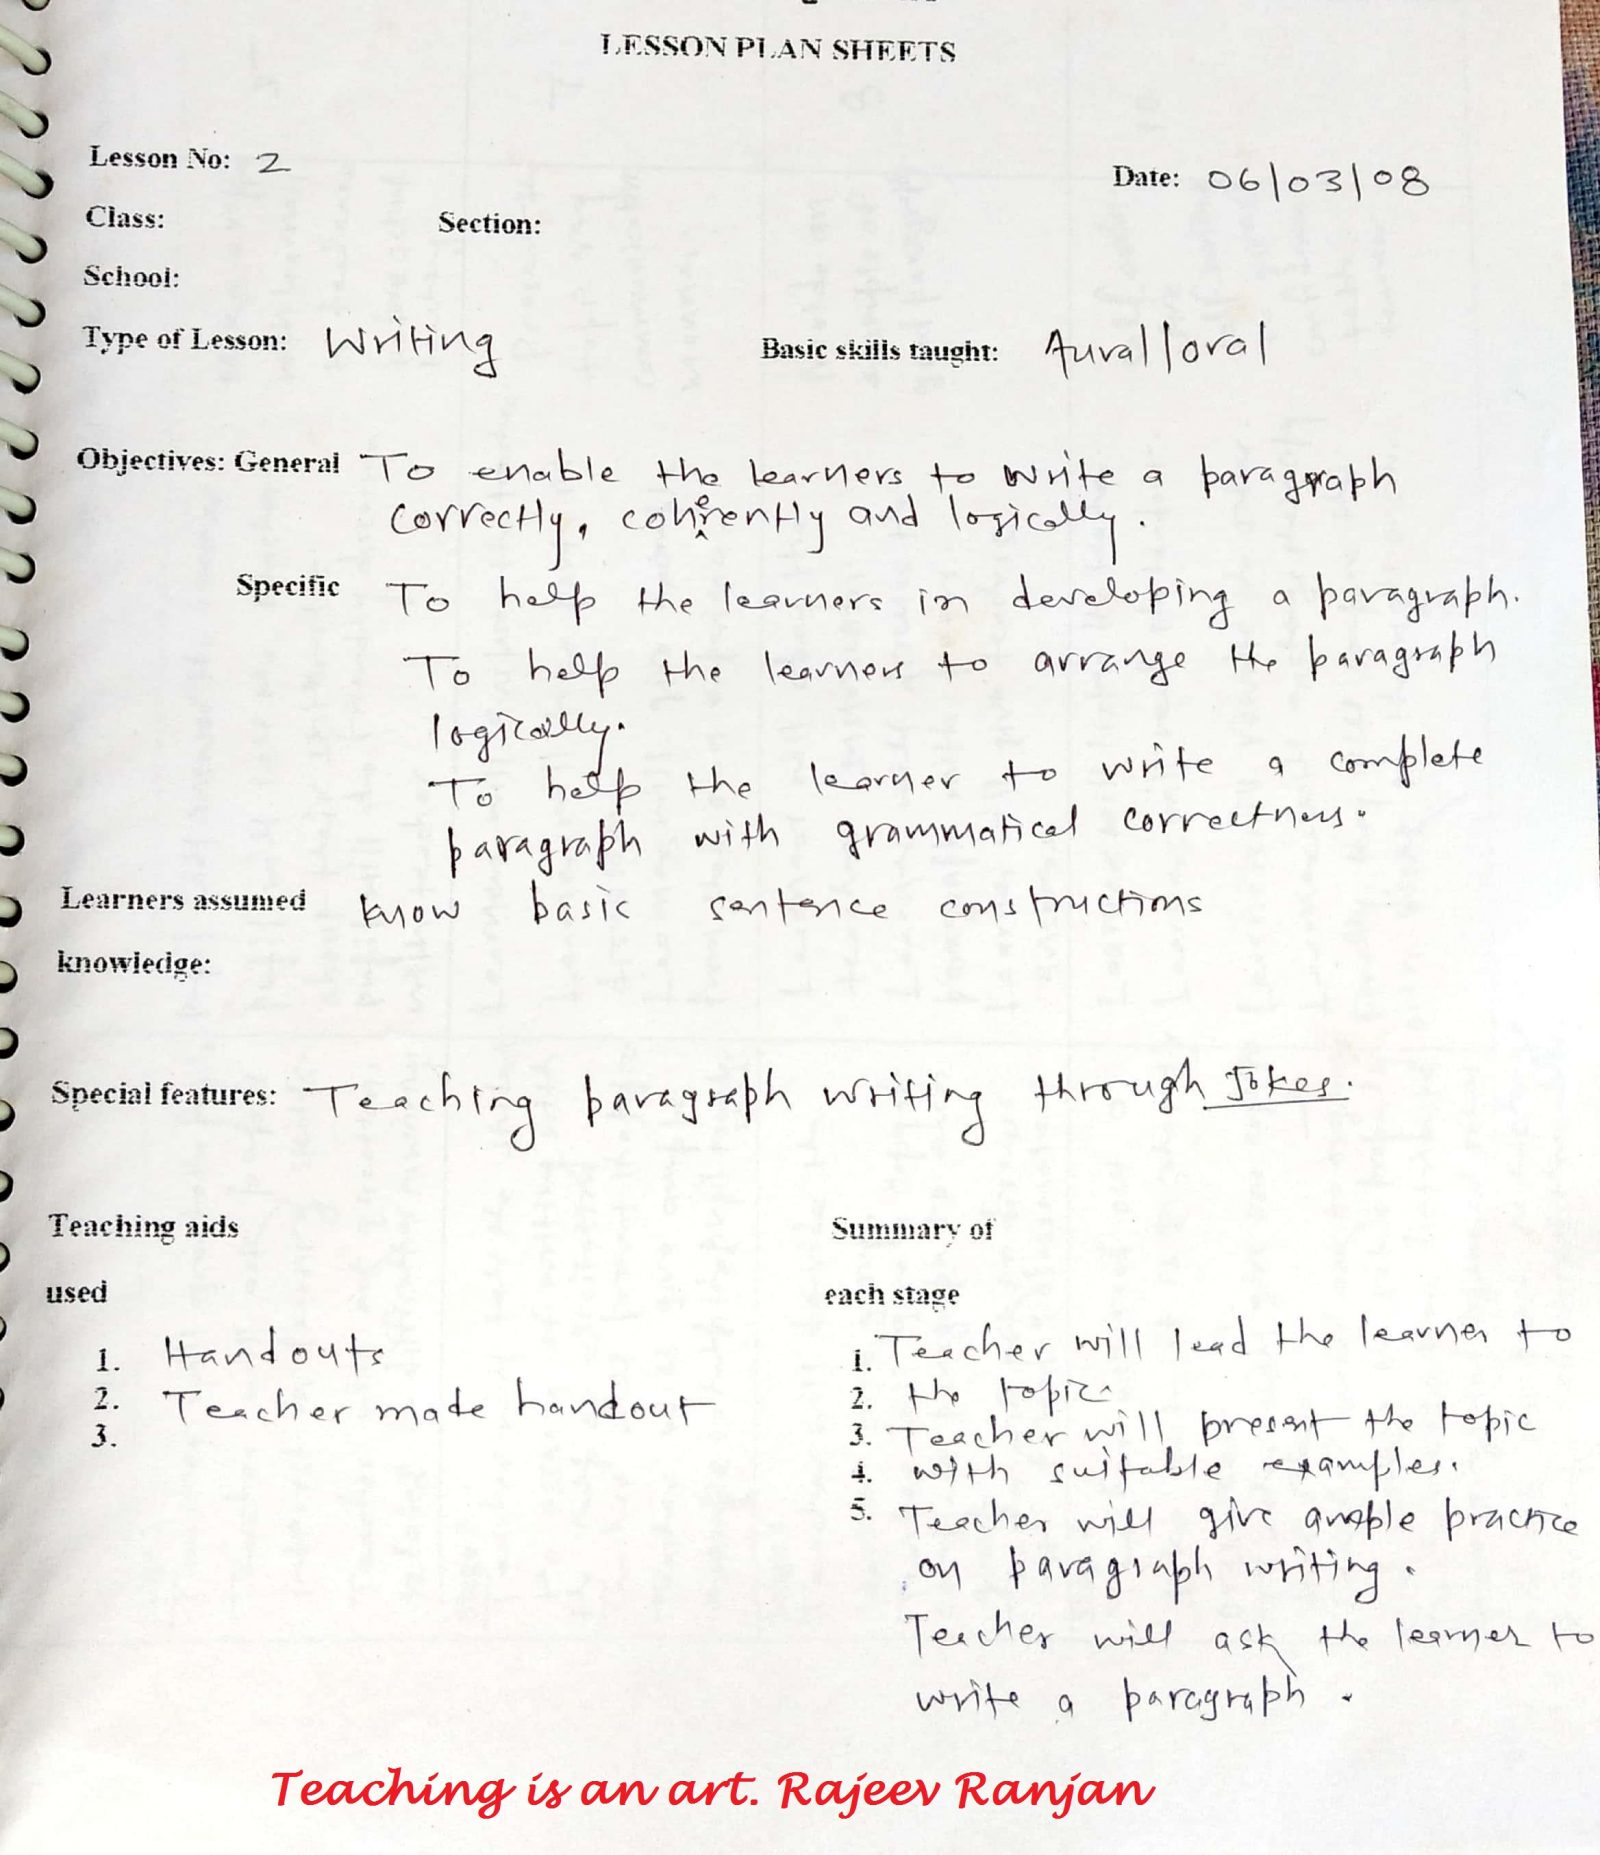 LESSON PLAN SHEETS
Lesson No: 2
Date: 06/03/08
Class: Section:
School:
Type of Lesson: Writing Basic skills taught: Aural/oral
Objectives: General To enable the learners to write a paragraph
correctly, coherently and logically.
Specific To help the learners in developing a paragraph.
To help the learners to arrange the paragraph
logically.
To help the learner to write a complete
paragraph with grammatical correctness.
Learners assumed know basic sentence constructions
knowledge:
Special features: Teaching paragraph writing through Jokes.
Teaching aids
used
1. Handouts
2. Teacher made handout
3.
Summary of
each stage
1. Teacher will lead the learner to
2. the topic.
3. Teacher will present the topic
4. with suitable examples.
5. Teacher will give ample practice
on paragraph writing.
Teacher will ask the learner to
write a paragraph.
Teaching is an art. Rajeev Ranjan